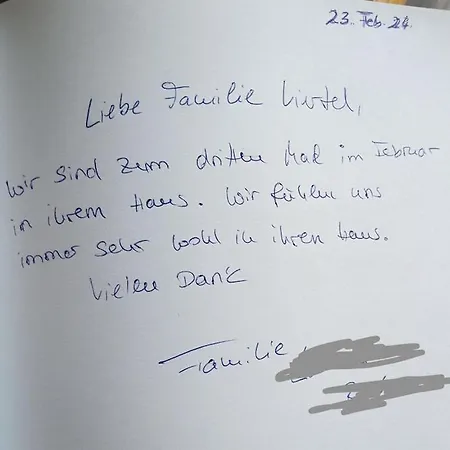 23. Feb. 24.
Liebe Familie
wir sind zum dritten Mal im Februar
in ihrem Haus. Wir fühlen uns
immer sehr wohl in ihren Haus.
Vielen Dank
Familie